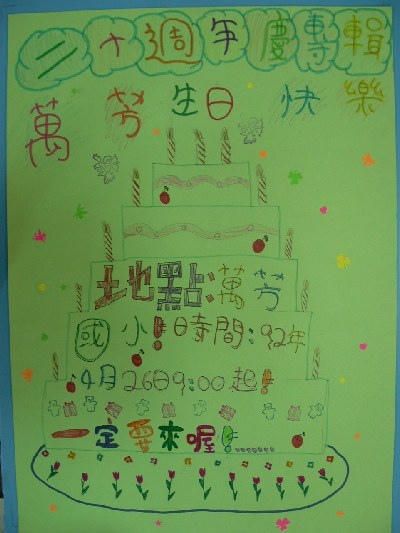 二十週年慶專輯
萬芳生日快樂
地點:萬芳
國小!時間:92年
4月26日9:00起!
一定要來喔!……